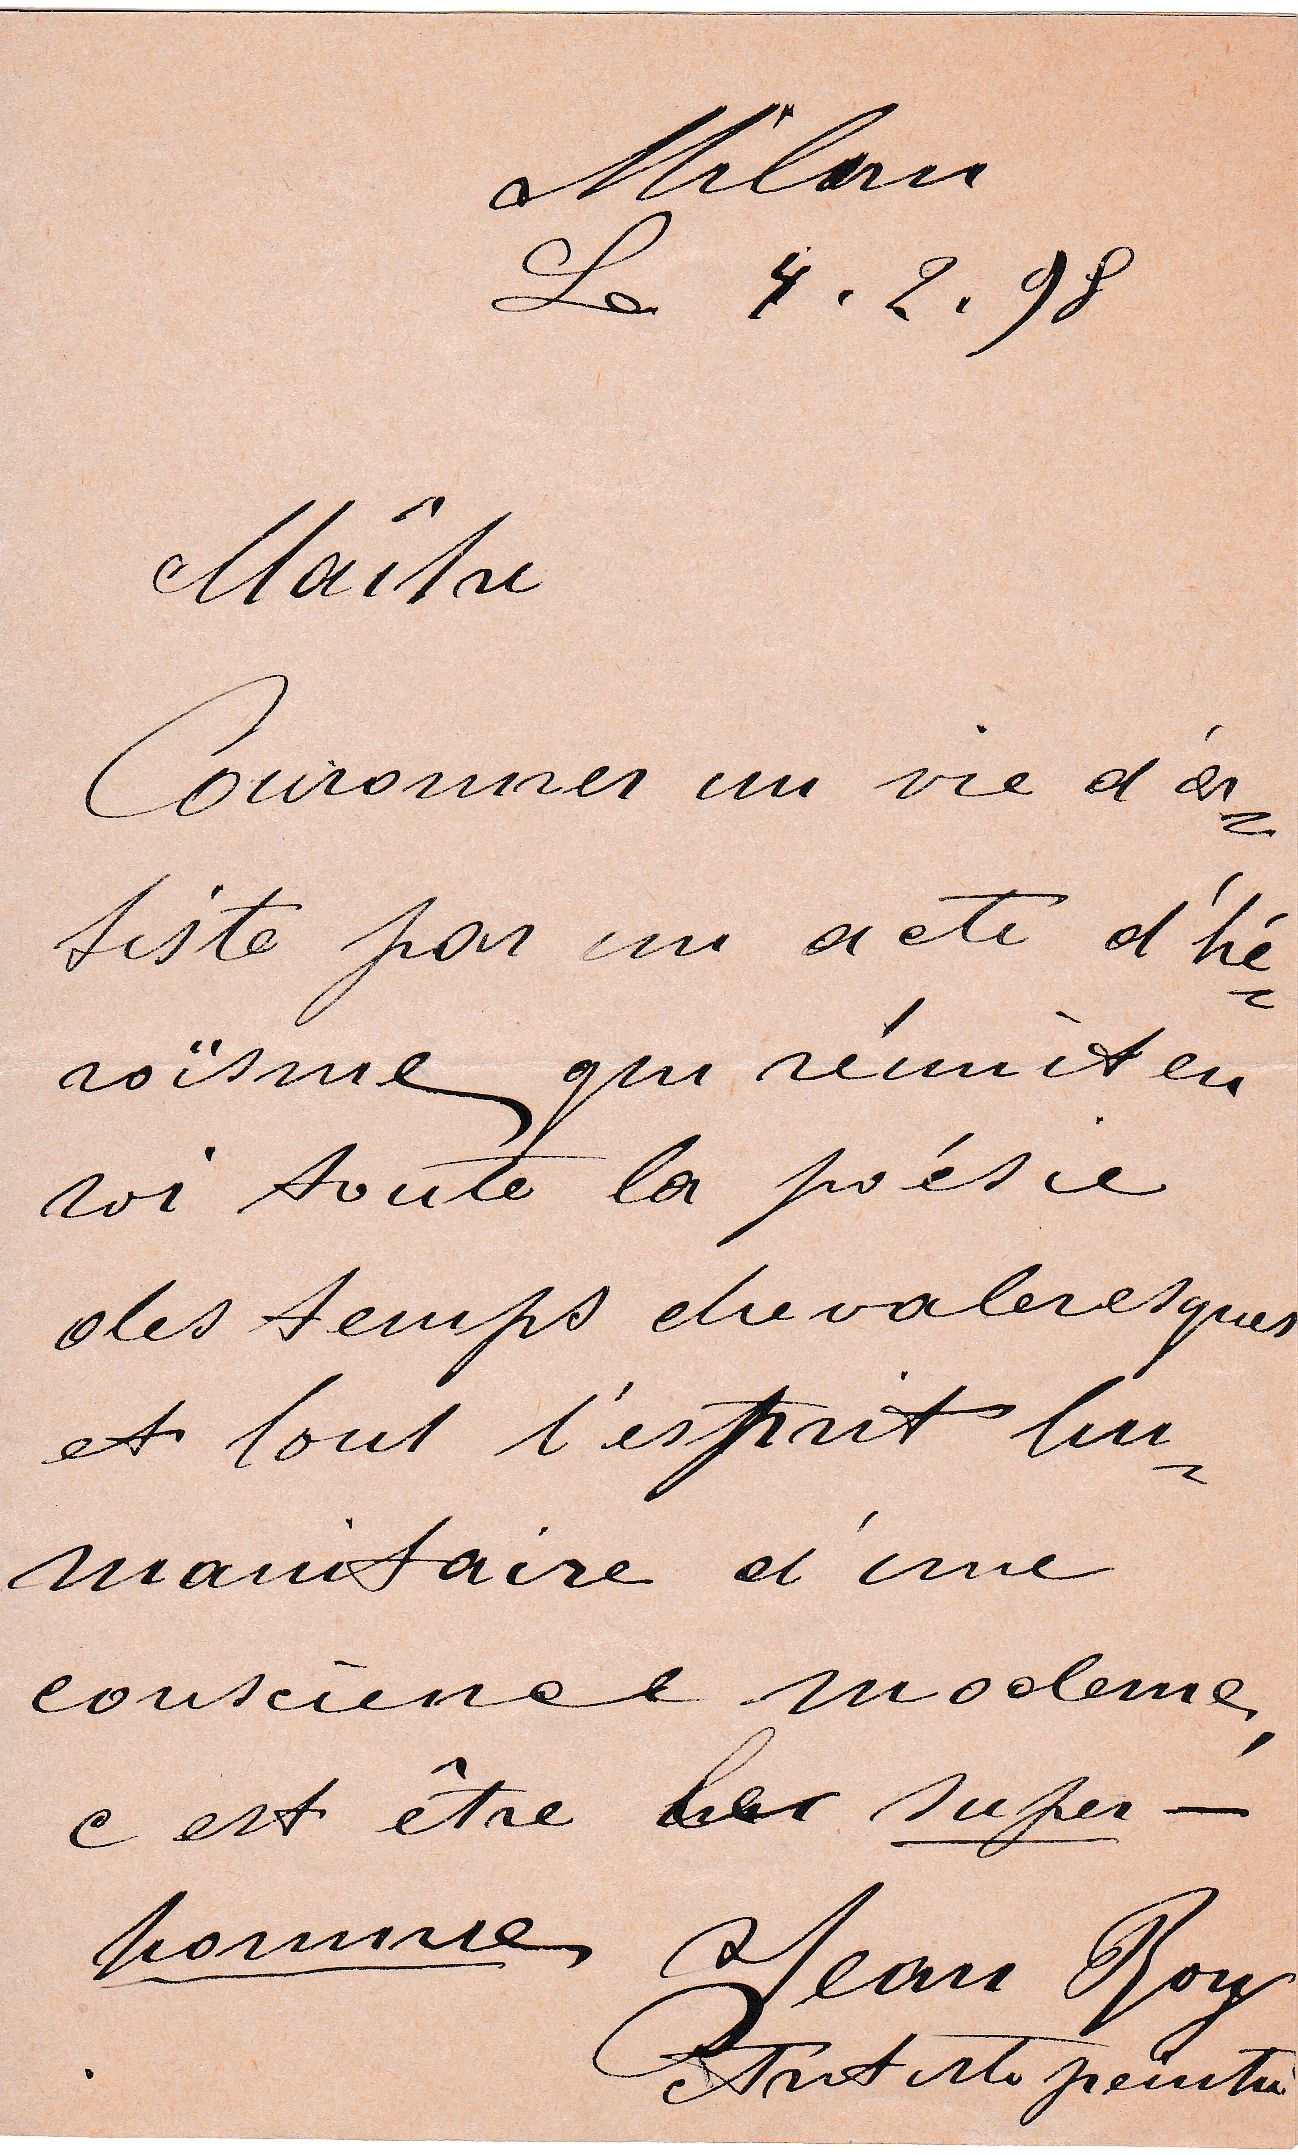 Milan
Le 4.2.98
Maître
Couronner un vie d'ar=
tiste par un acte d'hé=
roïsme qui réunit en
soi toute la poésie
des temps chevaleresques
et tout l'esprit hu=
manitaire d'une
conscience moderne,
c est être super-
homme,
Jean Roy
Artiste peintre